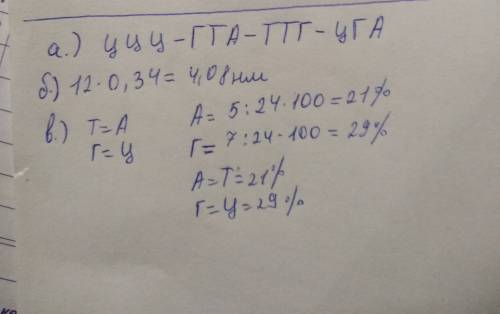 а.) ЦЦЦ-ГТА-ТТГ-ЦГА
б.) 12·0,34= 4,08нм
в.) Т=А А= 5:24·100=21%
Г=Ц Г= 7:24·100=29%
А=Т=21%
Г=Ц=29%